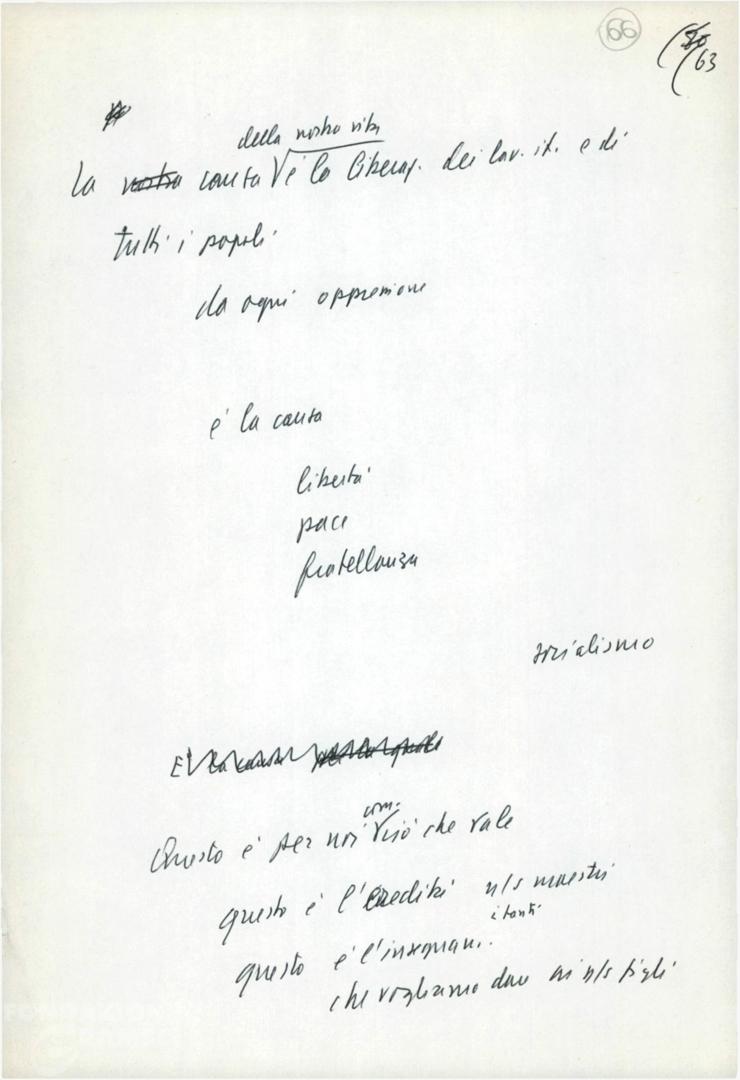 66
63
della nostra vita
La nostra causa è la liberaz. dei lav. it. e di
tutti i popoli
da ogni oppressione
è la causa
libertà
pace
fratellanza
socialismo
E' la causa per la quale
com.
Questo è per noi ciò che vale
questo è l'eredità n/s maestri
i tanti
questo è l'insegnam.
che vogliamo dare ai n/s figli
FONDAZIONE